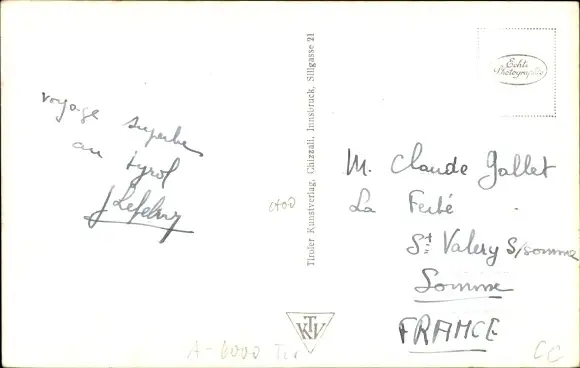 voyage superbe
au Tyrol
J Lefebvre
Tiroler Kunstverlag, Chizzali, Innsbruck, Sillgasse 21
Echte
Photographie
M. Claude Gallet
La Ferté
St Valery s/somme
Somme
FRANCE
KTV
A-6000 Tir
CC